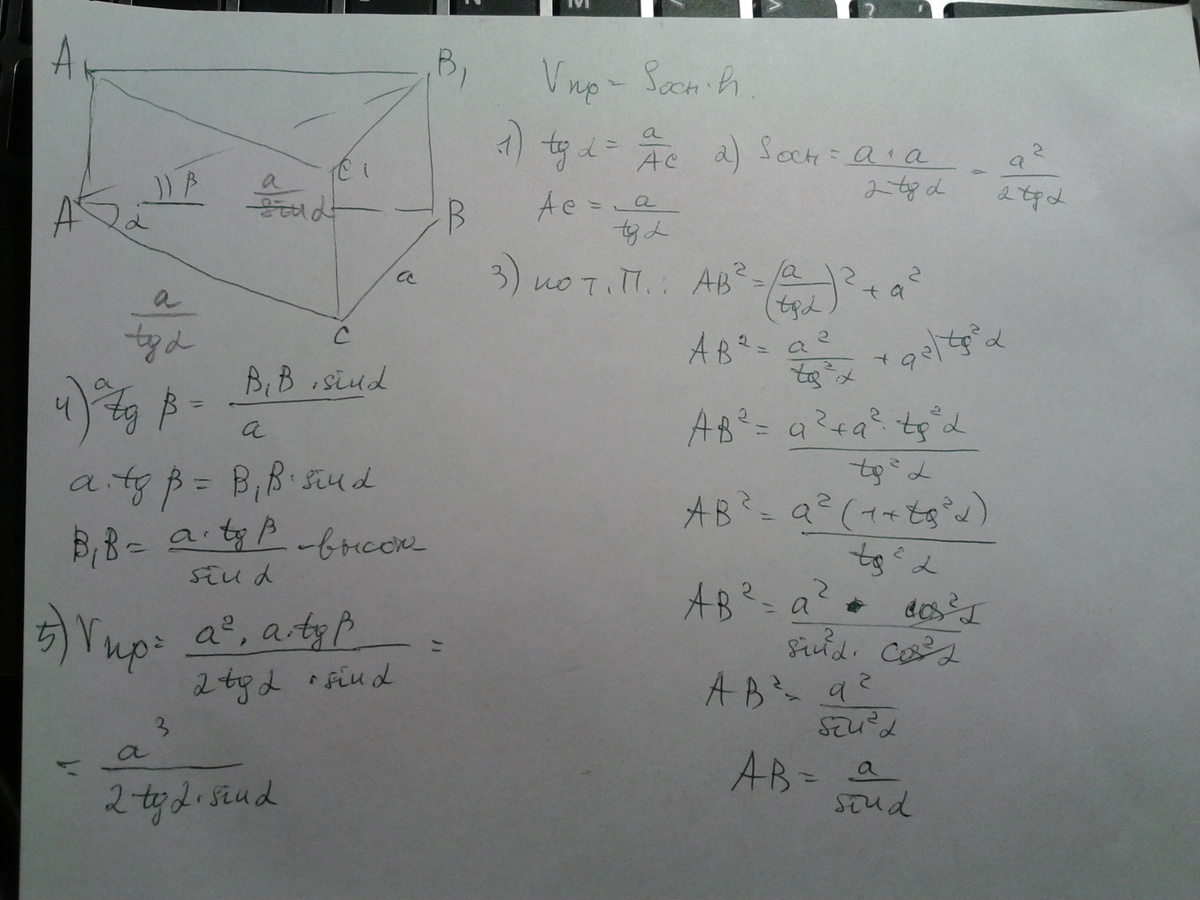 A
B₁
C₁
A
α
β
a/sinα
B
a
C
a/tgα
Vпр = Sосн·h.
1) tgα = a/AC 2) Sосн = a·a/2tgα = a²/2tgα
AC = a/tgα
3) по т.П.: AB² = (a/tgα)² + a²
AB² = a²/tg²α + a² \tg²α
AB² = a²+a²·tg²α/tg²α
AB² = a²(1+tg²α)/tg²α
AB² = a² · cos²α/sin²α·cos²α
AB² = a²/sin²α
AB = a/sinα
4) a/tg β = B₁B·sinα/a
a·tgβ = B₁B·sinα
B₁B = a·tgβ/sinα -высота
5) Vпр = a²·a·tgβ/2tgα·sinα =
= a³/2tgα·sinα